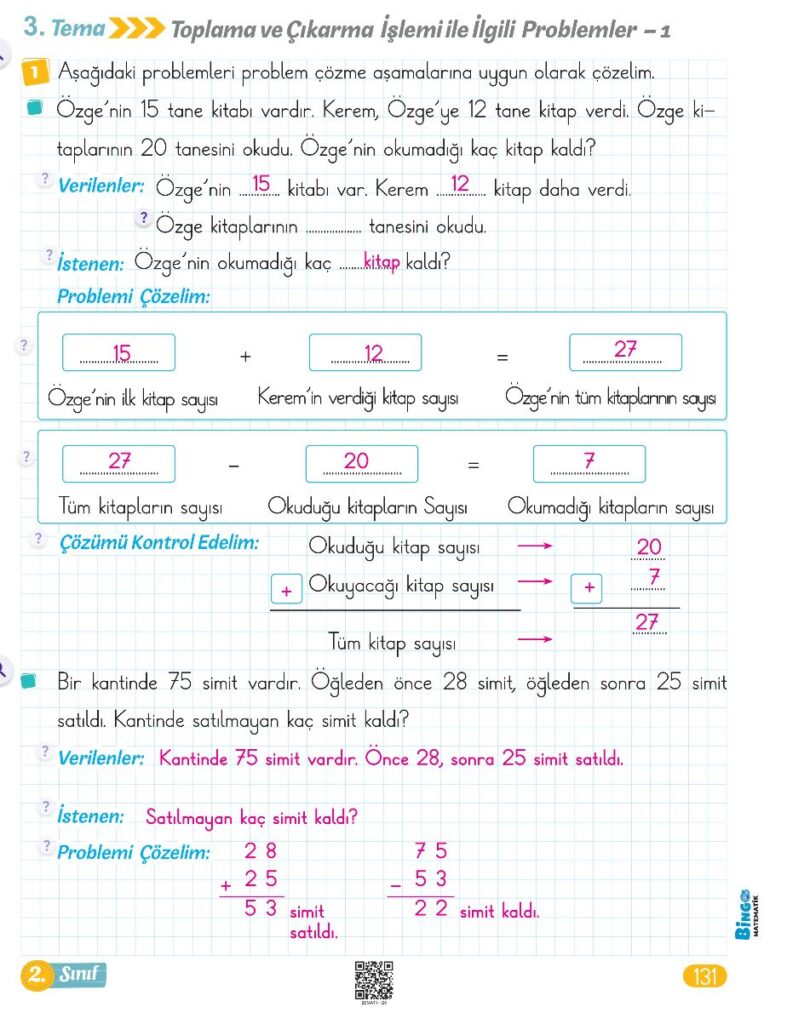 3. Tema Toplama ve Çıkarma İşlemi ile İlgili Problemler - 1
1 Aşağıdaki problemleri problem çözme aşamalarına uygun olarak çözelim.
Özge'nin 15 tane kitabı vardır. Kerem, Özge'ye 12 tane kitap verdi. Özge ki-
taplarının 20 tanesini okudu. Özge'nin okumadığı kaç kitap kaldı?
? Verilenler: Özge'nin 15 kitabı var. Kerem 12 kitap daha verdi.
? Özge kitaplarının .................. tanesini okudu.
? İstenen: Özge'nin okumadığı kaç ........kitap kaldı?
Problemi Çözelim:
? 15 + 12 = 27
Özge'nin ilk kitap sayısı Kerem'in verdiği kitap sayısı Özge'nin tüm kitaplarının sayısı
? 27 - 20 = 7
Tüm kitapların sayısı Okuduğu kitapların Sayısı Okumadığı kitapların sayısı
? Çözümü Kontrol Edelim: Okuduğu kitap sayısı → 20
+ Okuyacağı kitap sayısı → + 7
Tüm kitap sayısı → 27
Bir kantinde 75 simit vardır. Öğleden önce 28 simit, öğleden sonra 25 simit
satıldı. Kantinde satılmayan kaç simit kaldı?
? Verilenler: Kantinde 75 simit vardır. Önce 28, sonra 25 simit satıldı.
? İstenen: Satılmayan kaç simit kaldı?
? Problemi Çözelim: 2 8 7 5
+ 2 5 - 5 3
5 3 simit satıldı. 2 2 simit kaldı.
BİNGO MATEMATİK
2. Sınıf 131